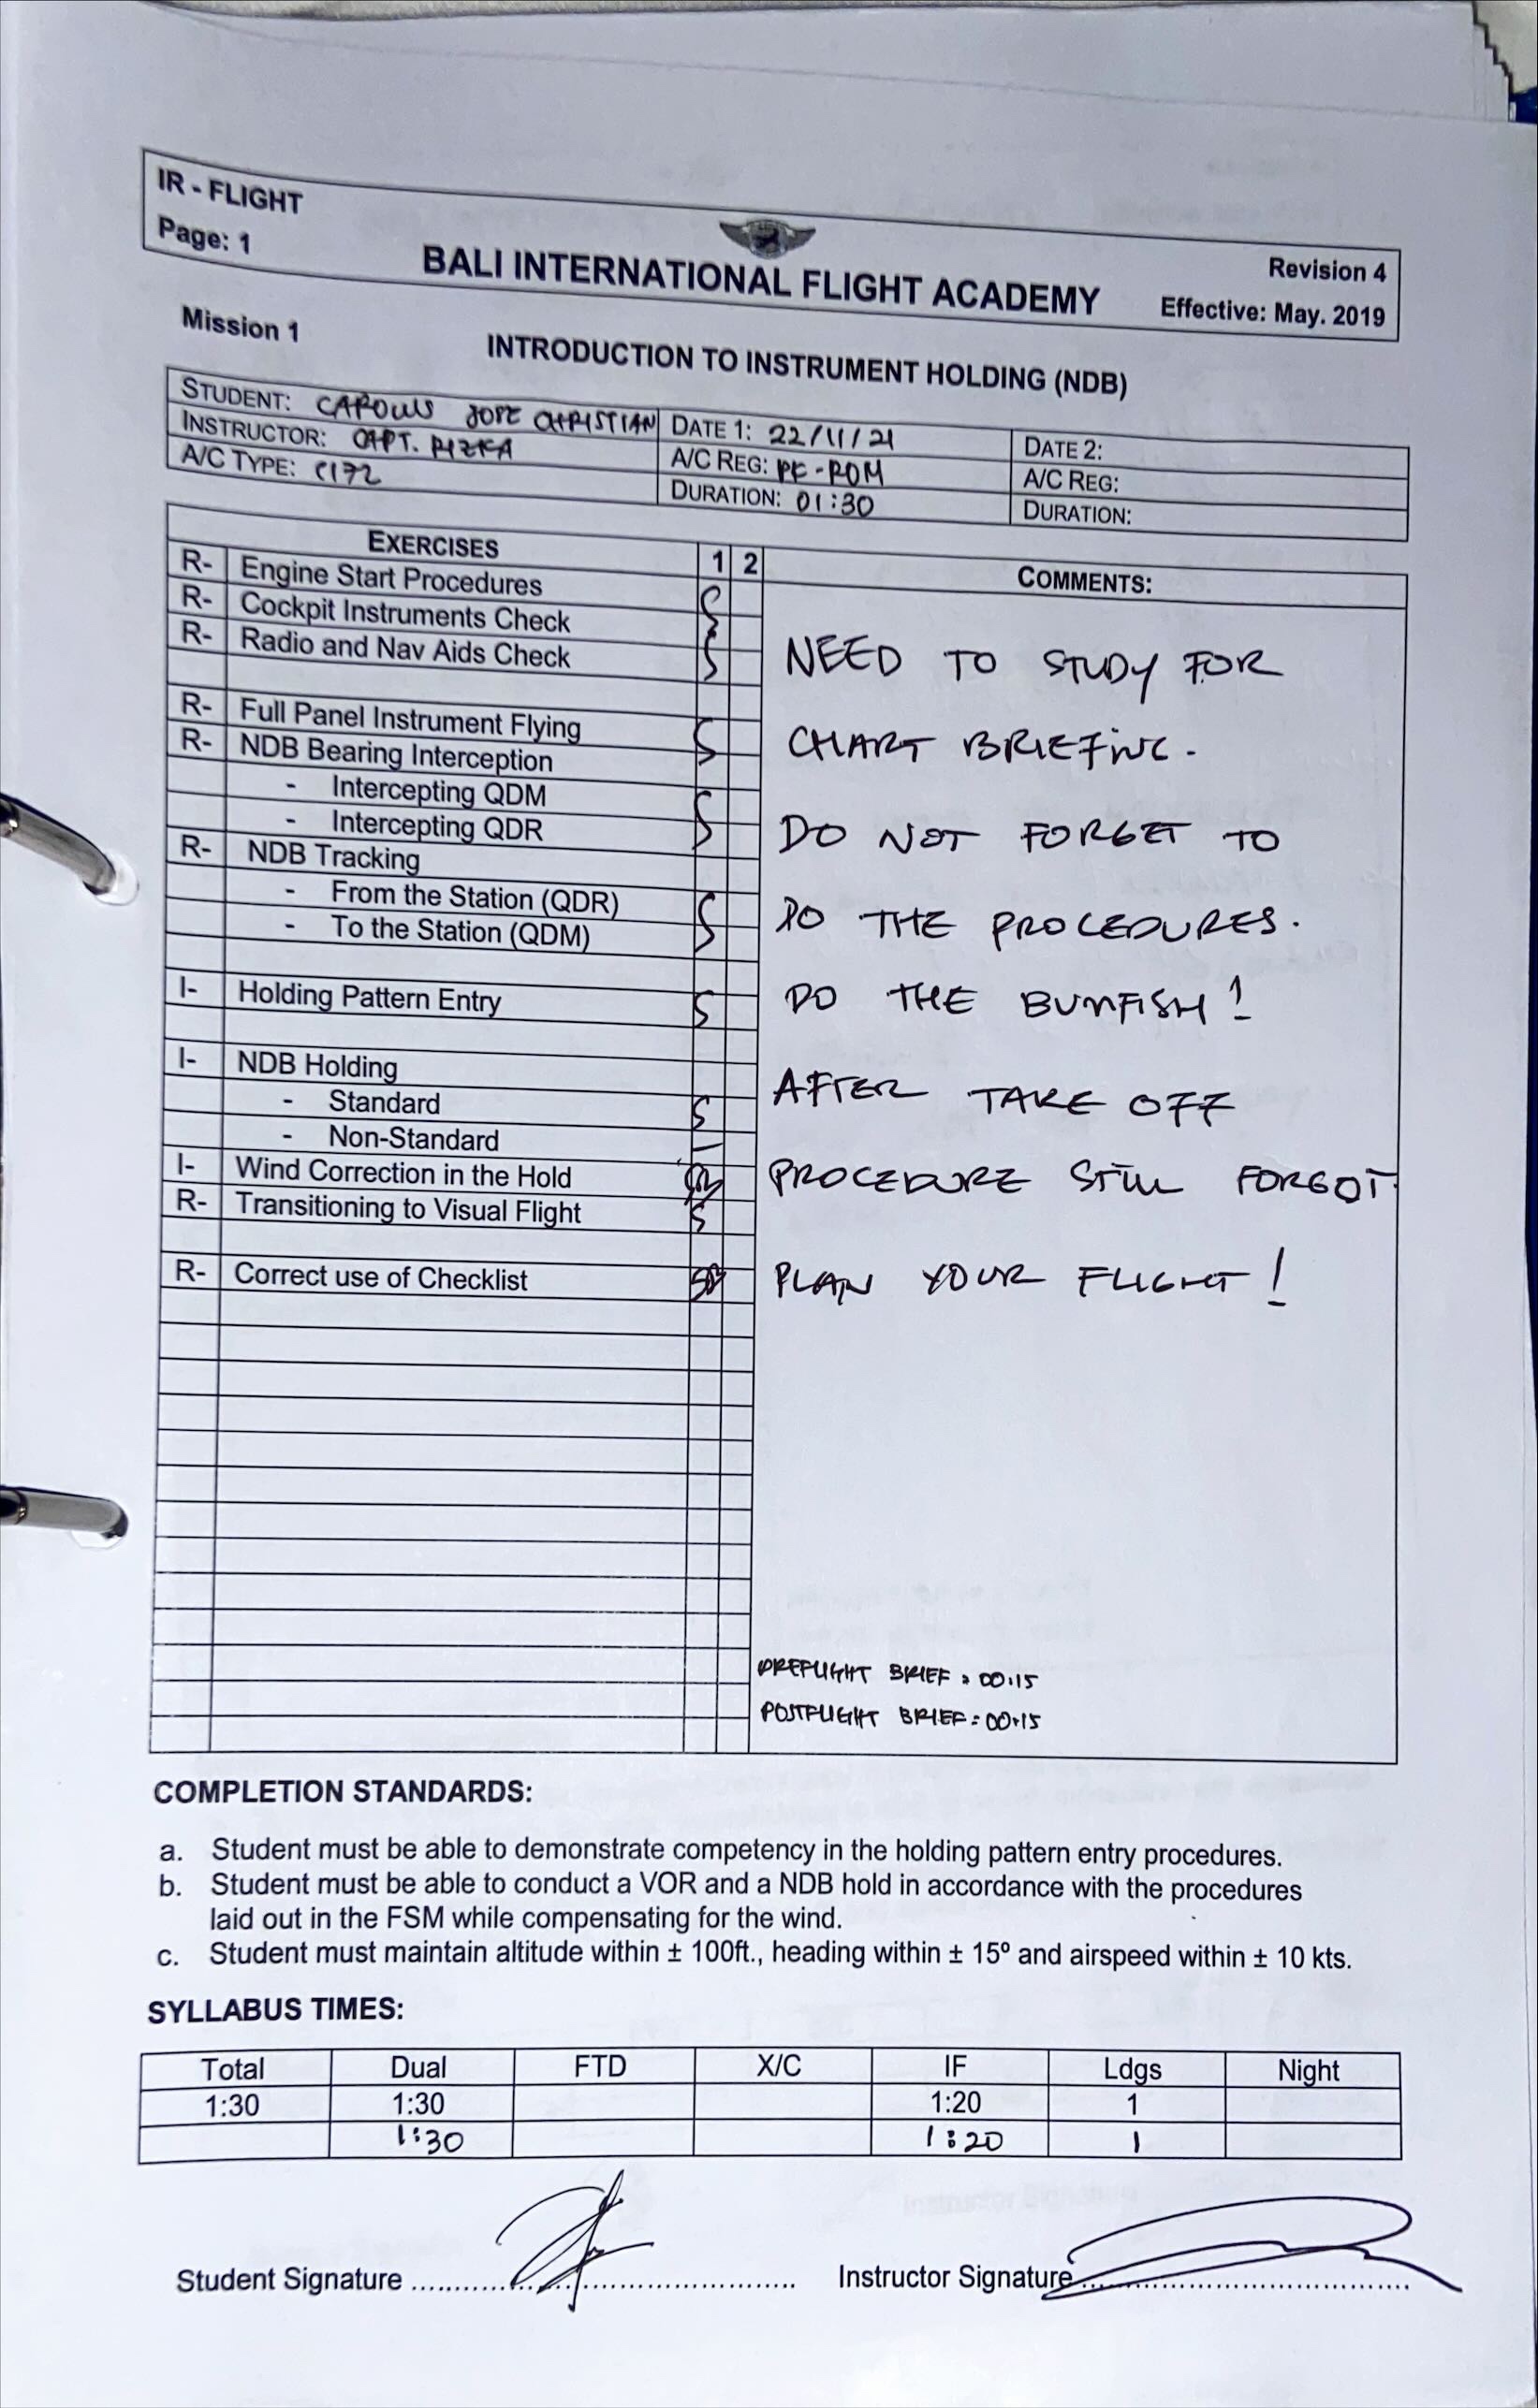 IR - FLIGHT
Page: 1
BALI INTERNATIONAL FLIGHT ACADEMY
Revision 4
Effective: May. 2019
Mission 1
INTRODUCTION TO INSTRUMENT HOLDING (NDB)
STUDENT: CAROLUS JOSE CHRISTIAN DATE 1: 22/11/21 DATE 2:
INSTRUCTOR: CAPT. RIZKA A/C REG: PK-ROM A/C REG:
A/C TYPE: C172 DURATION: 01:30 DURATION:
EXERCISES 1 2 COMMENTS:
R- Engine Start Procedures S
R- Cockpit Instruments Check S
R- Radio and Nav Aids Check S
R- Full Panel Instrument Flying S
R- NDB Bearing Interception
- Intercepting QDM
- Intercepting QDR S
R- NDB Tracking
- From the Station (QDR)
- To the Station (QDM) S
I- Holding Pattern Entry S
I- NDB Holding
- Standard S
- Non-Standard
I- Wind Correction in the Hold
R- Transitioning to Visual Flight S
R- Correct use of Checklist
NEED TO STUDY FOR
CHART BRIEFING.
DO NOT FORGET TO
DO THE PROCEDURES.
DO THE BUMFISH!
AFTER TAKE OFF
PROCEDURE STILL FORGOT.
PLAN YOUR FLIGHT!
PREFLIGHT BRIEF : 00:15
POSTFLIGHT BRIEF : 00:15
COMPLETION STANDARDS:
a. Student must be able to demonstrate competency in the holding pattern entry procedures.
b. Student must be able to conduct a VOR and a NDB hold in accordance with the procedures
laid out in the FSM while compensating for the wind.
c. Student must maintain altitude within ± 100ft., heading within ± 15º and airspeed within ± 10 kts.
SYLLABUS TIMES:
Total Dual FTD X/C IF Ldgs Night
1:30 1:30 1:20 1
1:30 1:20 1
Student Signature ........................ Instructor Signature ........................